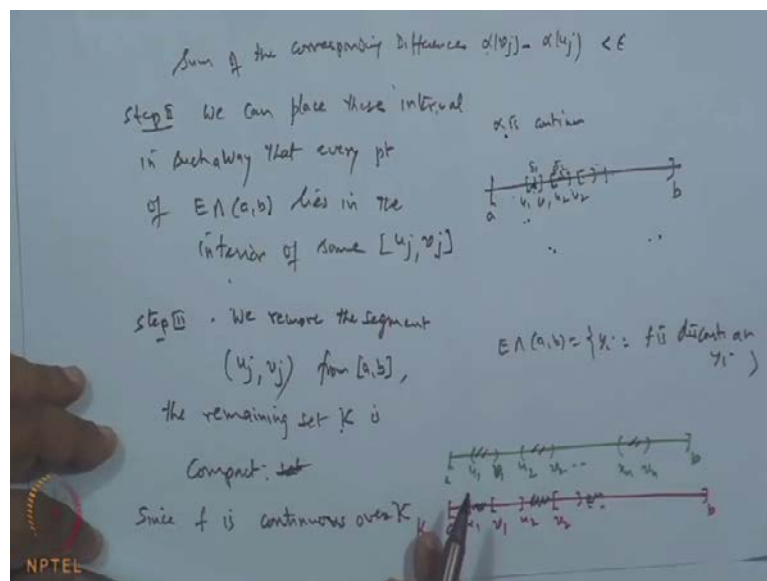 Sum of the corresponding Differences α(vj) - α(uj) < ε
Step II We can place these interval
in such a way that every pt
of E ∩ (a,b) lies in the
interior of some [uj, vj]
α is continu
a u1 v1 u2 v2 b
Step III . We remove the segment
(uj, vj) from [a,b],
the remaining set K is
Compact.
E ∩ (a,b) = { yi : f is discont an yi }
u1 v1 u2 v2 .. vn b
Since f is continuous over K
K u1 v1 u2 v2 b
NPTEL